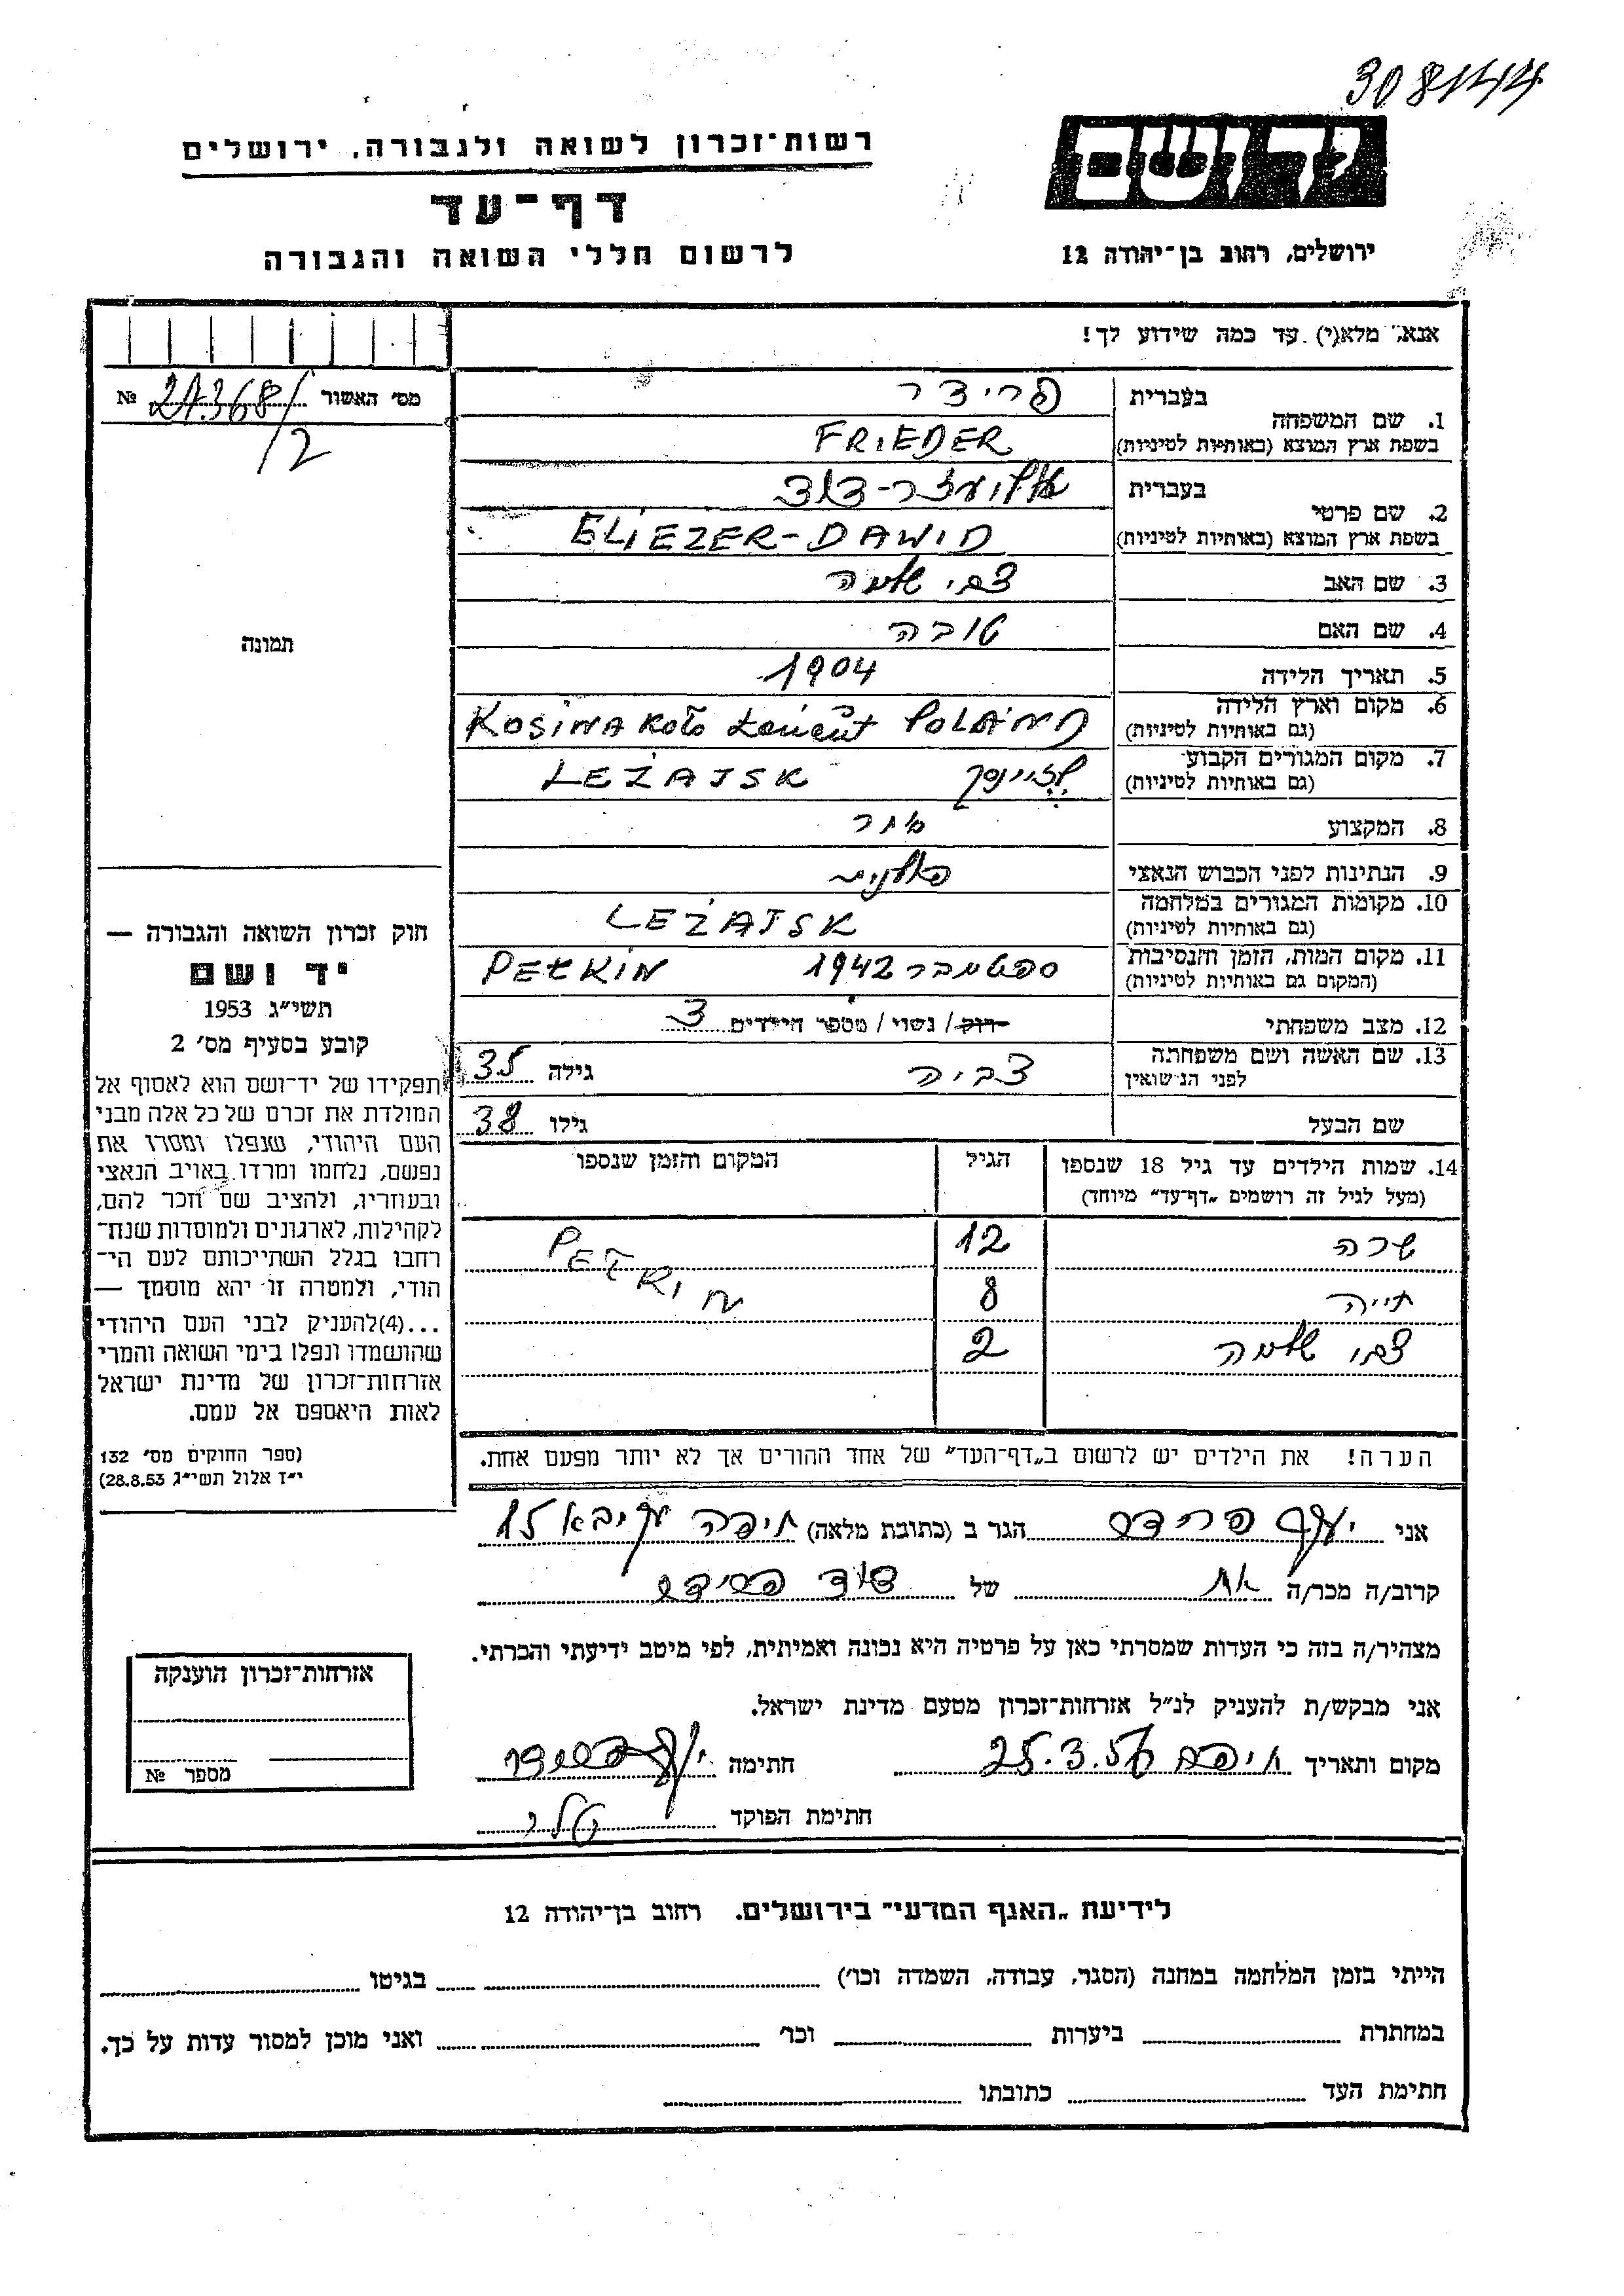 308144
רשות-זכרון לשואה ולגבורה, ירושלים
דף-עד
לרשום חללי השואה והגבורה
ידושם
ירושלים, רחוב בן-יהודה 12
אנא, מלא(י) עד כמה שידוע לך!
מס' האשור № 27368/2
תמונה
בעברית פרידר
1. שם המשפחה
בשפת ארץ המוצא (באותיות לטיניות) FRIEDER
בעברית אליעזר-דוד
2. שם פרטי
בשפת ארץ המוצא (באותיות לטיניות) ELIEZER-DAWID
3. שם האב צבי שלמה
4. שם האם טובה
5. תאריך הלידה 1904
6. מקום וארץ הלידה
(גם באותיות לטיניות) KOSINA Koło Łańcut POLAND
7. מקום המגורים הקבוע
(גם באותיות לטיניות) LEŻAJSK
8. המקצוע
9. הנתינות לפני הכבוש הנאצי פולנית
10. מקומות המגורים במלחמה
(גם באותיות לטיניות) LEŻAJSK
11. מקום המות, הזמן והנסיבות
(המקום גם באותיות לטיניות) ספטמבר 1942 PEŁKIN
12. מצב משפחתי רוק / נשוי / מספר הילדים 3
13. שם האשה ושם משפחתה
לפני הנישואין צביה גילה 35
שם הבעל גילו 38
14. שמות הילדים עד גיל 18 שנספו הגיל המקום והזמן שנספו
(מעל לגיל זה רושמים „דף-עד" מיוחד)
שרה 12 PEŁKIN
חייה 8
צבי שלמה 2
הערה! את הילדים יש לרשום ב„דף-העד" של אחד ההורים אך לא יותר מפעם אחת.
חוק זכרון השואה והגבורה —
יד ושם
תשי"ג 1953
קובע בסעיף מס' 2
תפקידו של יד-ושם הוא לאסוף אל
המולדת את זכרם של כל אלה מבני
העם היהודי, שנפלו ומסרו את
נפשם, נלחמו ומרדו באויב הנאצי
ובעוזריו, ולהציב שם וזכר להם,
לקהילות, לארגונים ולמוסדות שנח-
רחבו בגלל השתייכותם לעם הי-
הודי, ולמטרה זו יהא מוסמך —
...(4)להעניק לבני העם היהודי
שהושמדו ונפלו בימי השואה והמרי
אזרחות-זכרון של מדינת ישראל
לאות היאספם אל עמם.
(ספר החוקים מס' 132
י"ז אלול תשי"ג 28.8.53)
אני פרידר הגר ב (כתובת מלאה) חיפה עקיבא 15
קרוב/ה מכר/ה אח של דוד פרידר
מצהיר/ה בזה כי העדות שמסרתי כאן על פרטיה היא נכונה ואמיתית, לפי מיטב ידיעתי והכרתי.
אני מבקש/ת להעניק לנ"ל אזרחות-זכרון מטעם מדינת ישראל.
מקום ותאריך חיפה 25.3.56 חתימה
חתימת הפוקד
אזרחות-זכרון הוענקה
מספר №
לידיעת „האגף המדעי" בירושלים. רחוב בן-יהודה 12
הייתי בזמן המלחמה במחנה (הסגר, עבודה, השמדה וכו') בגיטו
במחתרת ביערות וכו' ואני מוכן למסור עדות על כך.
חתימת העד כתובתו